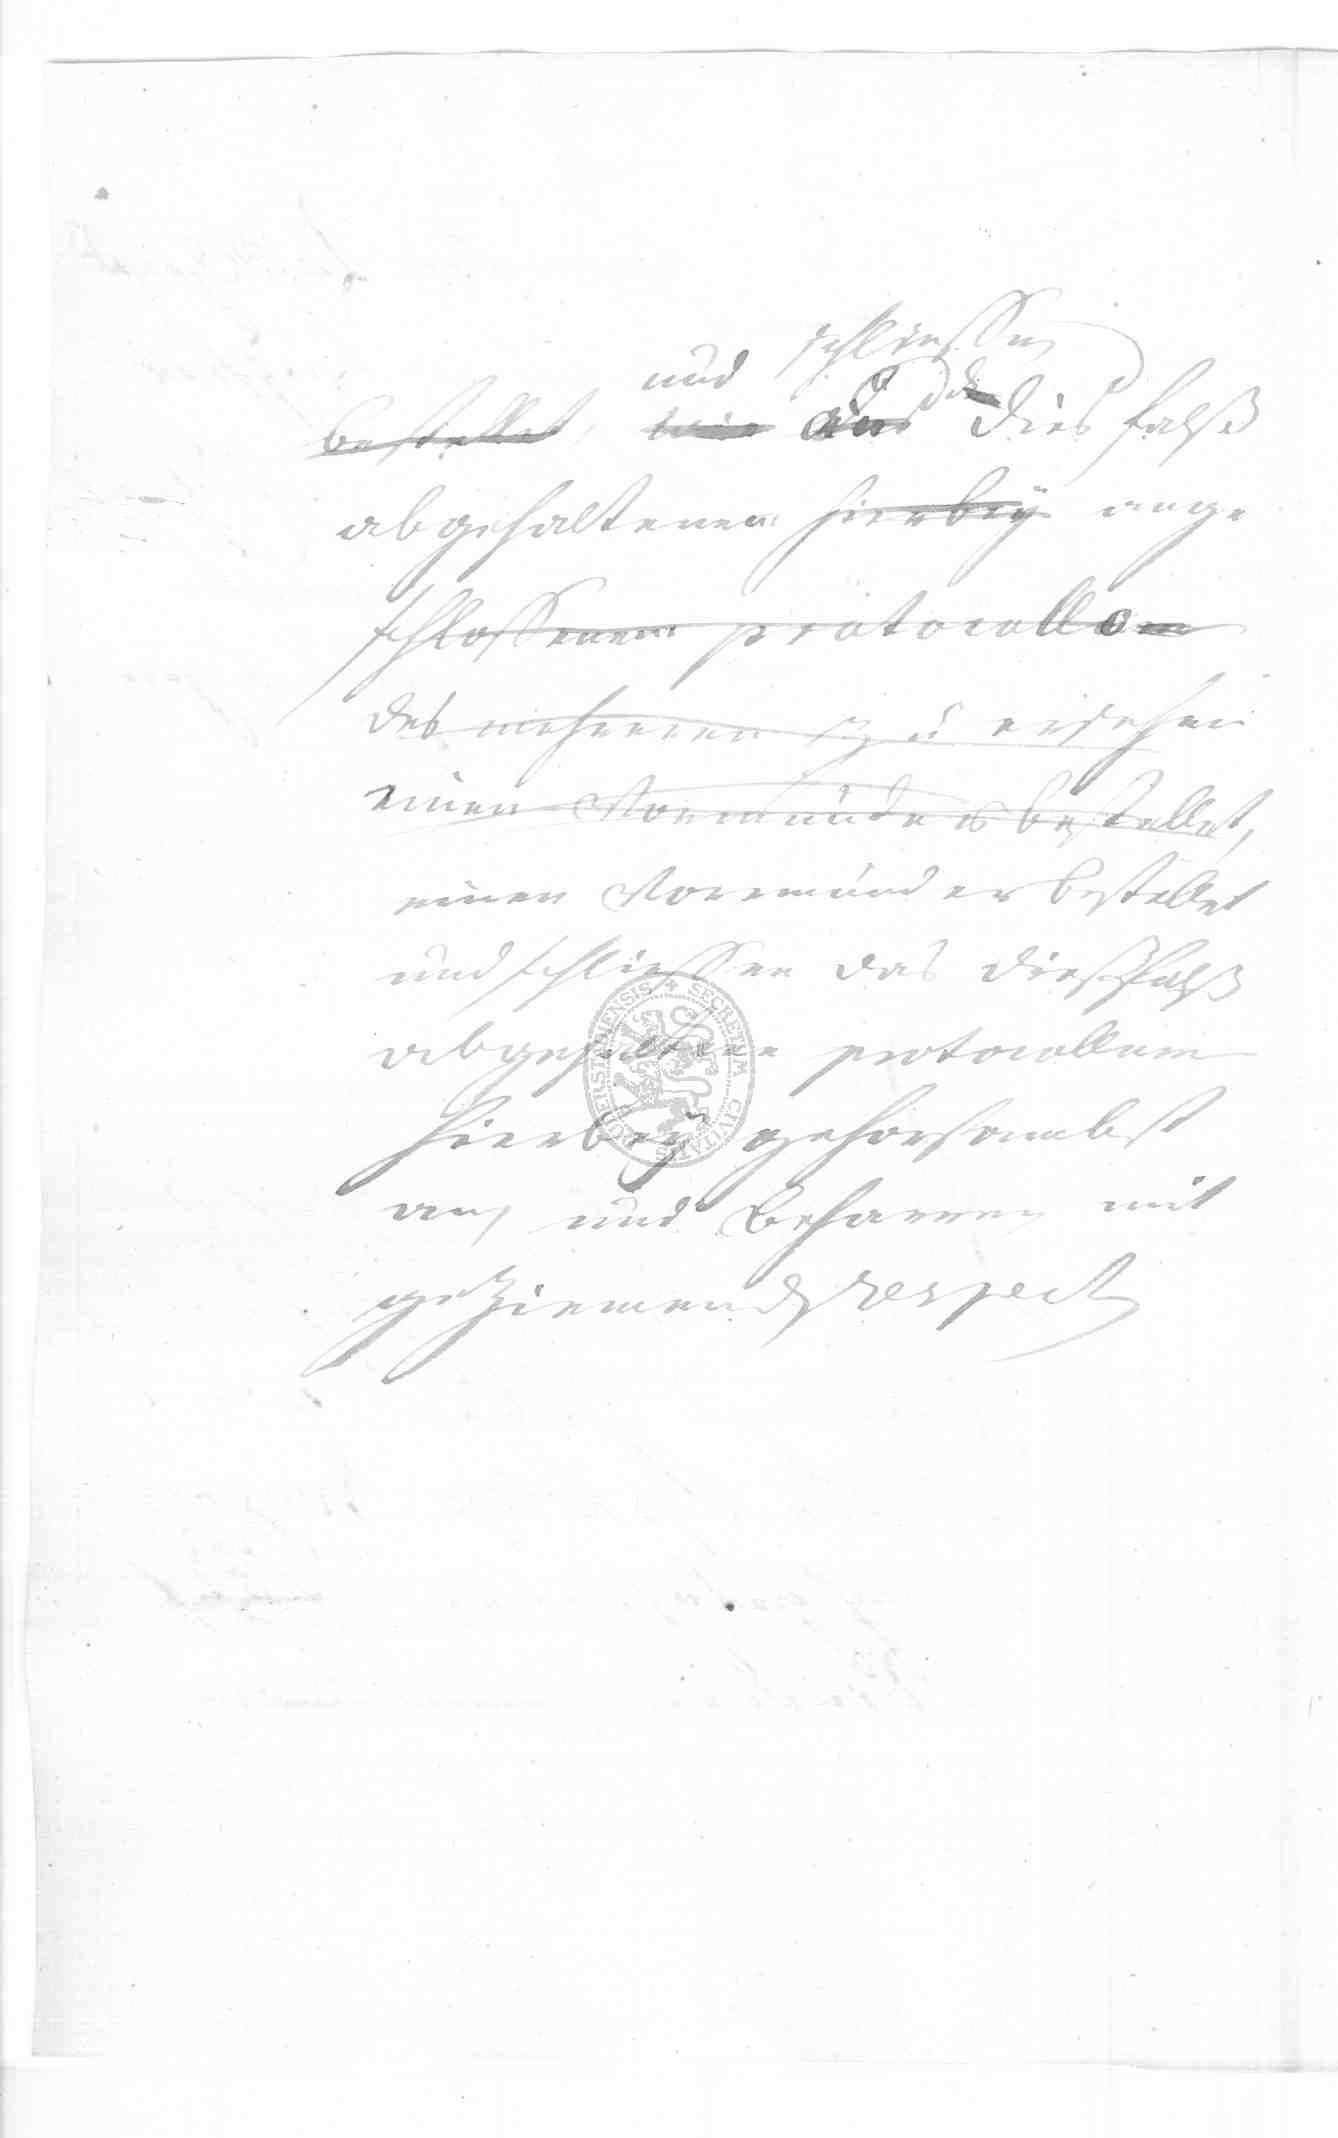 und schliessen
bestellet, wie aus das dies falß
abgehaltenen hierbeÿ ange
schlossenen protocollo
des mehreren zu ersehen
einen Vormünder bestellet,
einen Vormünder bestellet
und schliessen das diesfalß
abgehaltene protocollum
hierbeÿ gehorsambst
an, und beharren mit
geziemend respect
SECRETUM CIVITATIS DUDERSTADIENSIS